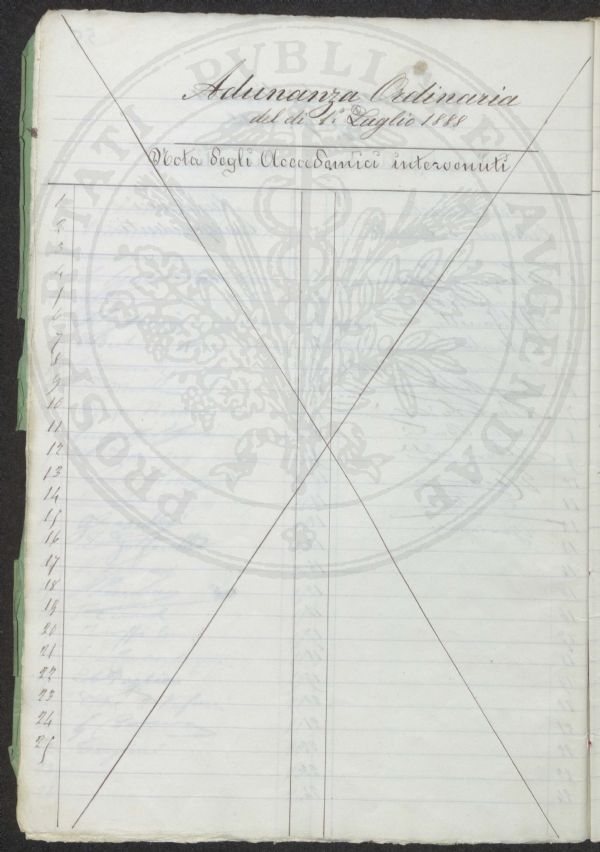 Adunanza Ordinaria
del dì 1º Luglio 1888
Nota degli Accademici intervenuti
1
2
3
4
5
6
7
8
9
10
11
12
13
14
15
16
17
18
19
20
21
22
23
24
25
PROSPERITATI PUBLICAE AUGENDAE